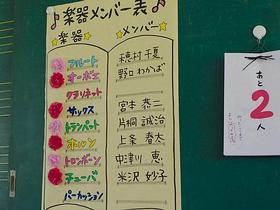 ♪楽器メンバー表♪
楽器 メンバー
フルート 穂村 千夏
オーボエ 野口 わかば
クラリネット
サックス 宮本 恭二
トランペット 片桐 誠治
ホルン 上条 春太
トロンボーン 中津川 恵
チューバ 米沢 妙子
パーカッション
あと
2
人